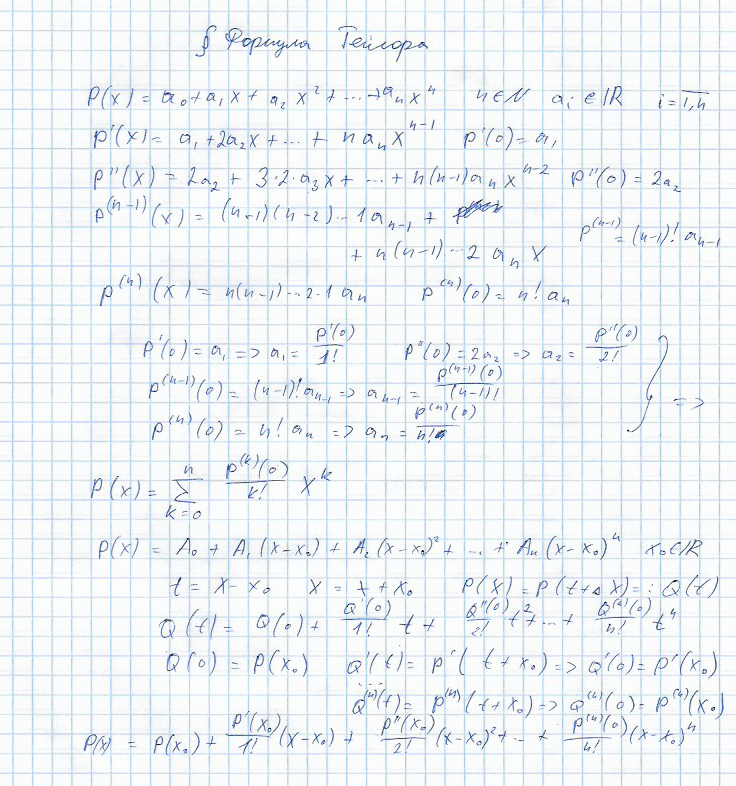 § Формула Тейлора
P(x) = a₀ + a₁x + a₂x² + ... + aₙxⁿ n∈N aᵢ∈IR i = \overline{1,n}
P'(x) = a₁ + 2a₂x + ... + n aₙxⁿ⁻¹ P'(0) = a₁
P''(x) = 2a₂ + 3·2·a₃x + ... + n(n-1)aₙxⁿ⁻² P''(0) = 2a₂
P⁽ⁿ⁻¹⁾(x) = (n-1)(n-2)...1aₙ₋₁ +
+ n(n-1)...2 aₙ x P⁽ⁿ⁻¹⁾ = (n-1)! aₙ₋₁
P⁽ⁿ⁾(x) = n(n-1)...2·1 aₙ P⁽ⁿ⁾(0) = n! aₙ
P'(0) = a₁ => a₁ = P'(0)/1! P''(0) = 2a₂ => a₂ = P''(0)/2!
P⁽ⁿ⁻¹⁾(0) = (n-1)! aₙ₋₁ => aₙ₋₁ = P⁽ⁿ⁻¹⁾(0)/(n-1)! } =>
P⁽ⁿ⁾(0) = n! aₙ => aₙ = P⁽ⁿ⁾(0)/n!
P(x) = ∑_{k=0}^{n} P⁽ᵏ⁾(0)/k! xᵏ
P(x) = A₀ + A₁(x-x₀) + A₂(x-x₀)² + ... + Aₙ(x-x₀)ⁿ x₀∈IR
t = x-x₀ x = t + x₀ P(x) = P(t+ x) =: Q(t)
Q(t) = Q(0) + Q'(0)/1! t + Q''(0)/2! t² + ... + Q⁽ⁿ⁾(0)/n! tⁿ
Q(0) = P(x₀) Q'(t) = P'(t+x₀) => Q'(0) = P'(x₀)
...
Q⁽ⁿ⁾(t) = P⁽ⁿ⁾(t+x₀) => Q⁽ⁿ⁾(0) = P⁽ⁿ⁾(x₀)
P(x) = P(x₀) + P'(x₀)/1! (x-x₀) + P''(x₀)/2! (x-x₀)² + ... + P⁽ⁿ⁾(0)/n! (x-x₀)ⁿ